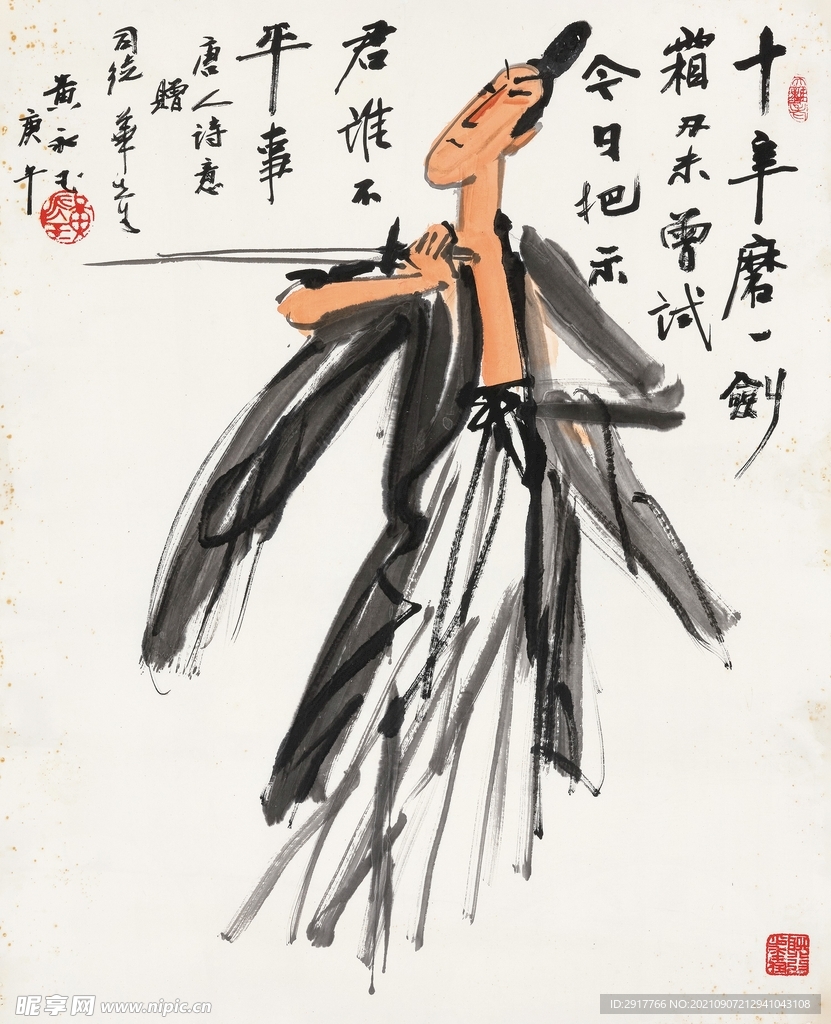 十年磨一劍
霜刃未曾試
今日把示
君誰不
平事
唐人詩意
贈
司徒華先生
黄永玉
庚午
昵享网 www.nipic.cn
ID:2917766 NO:20210907212941043108